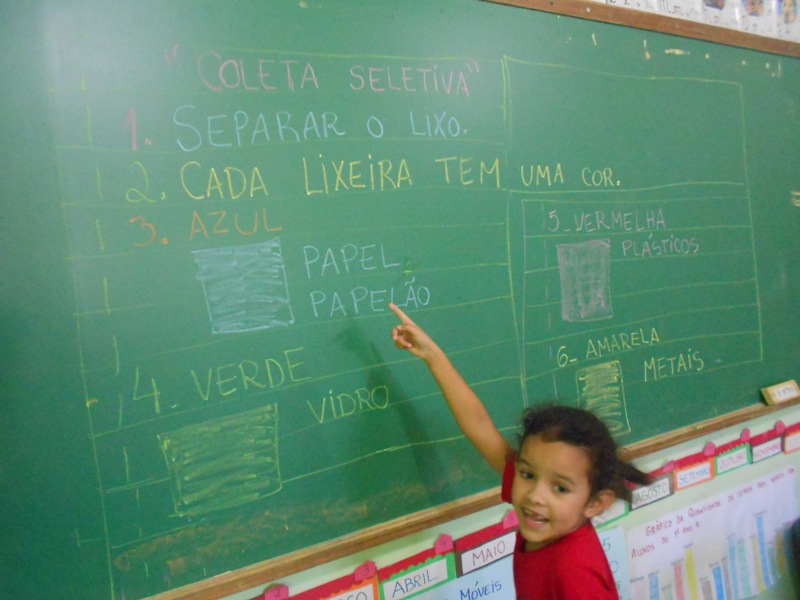 "COLETA SELETIVA"
1. SEPARAR O LIXO.
2. CADA LIXEIRA TEM UMA COR.
3. AZUL
PAPEL
PAPELÃO
4_ VERDE
VIDRO
5_ VERMELHA
PLÁSTICOS
6_ AMARELA
METAIS
ABRIL
MAIO
MÓVEIS
AGOSTO
SETEMBRO
OUTUBRO
NOVEMBRO
GRÁFICO DA QUANTIDADE DE LETRAS DOS NOMES DOS
ALUNOS DO 1º ANO A